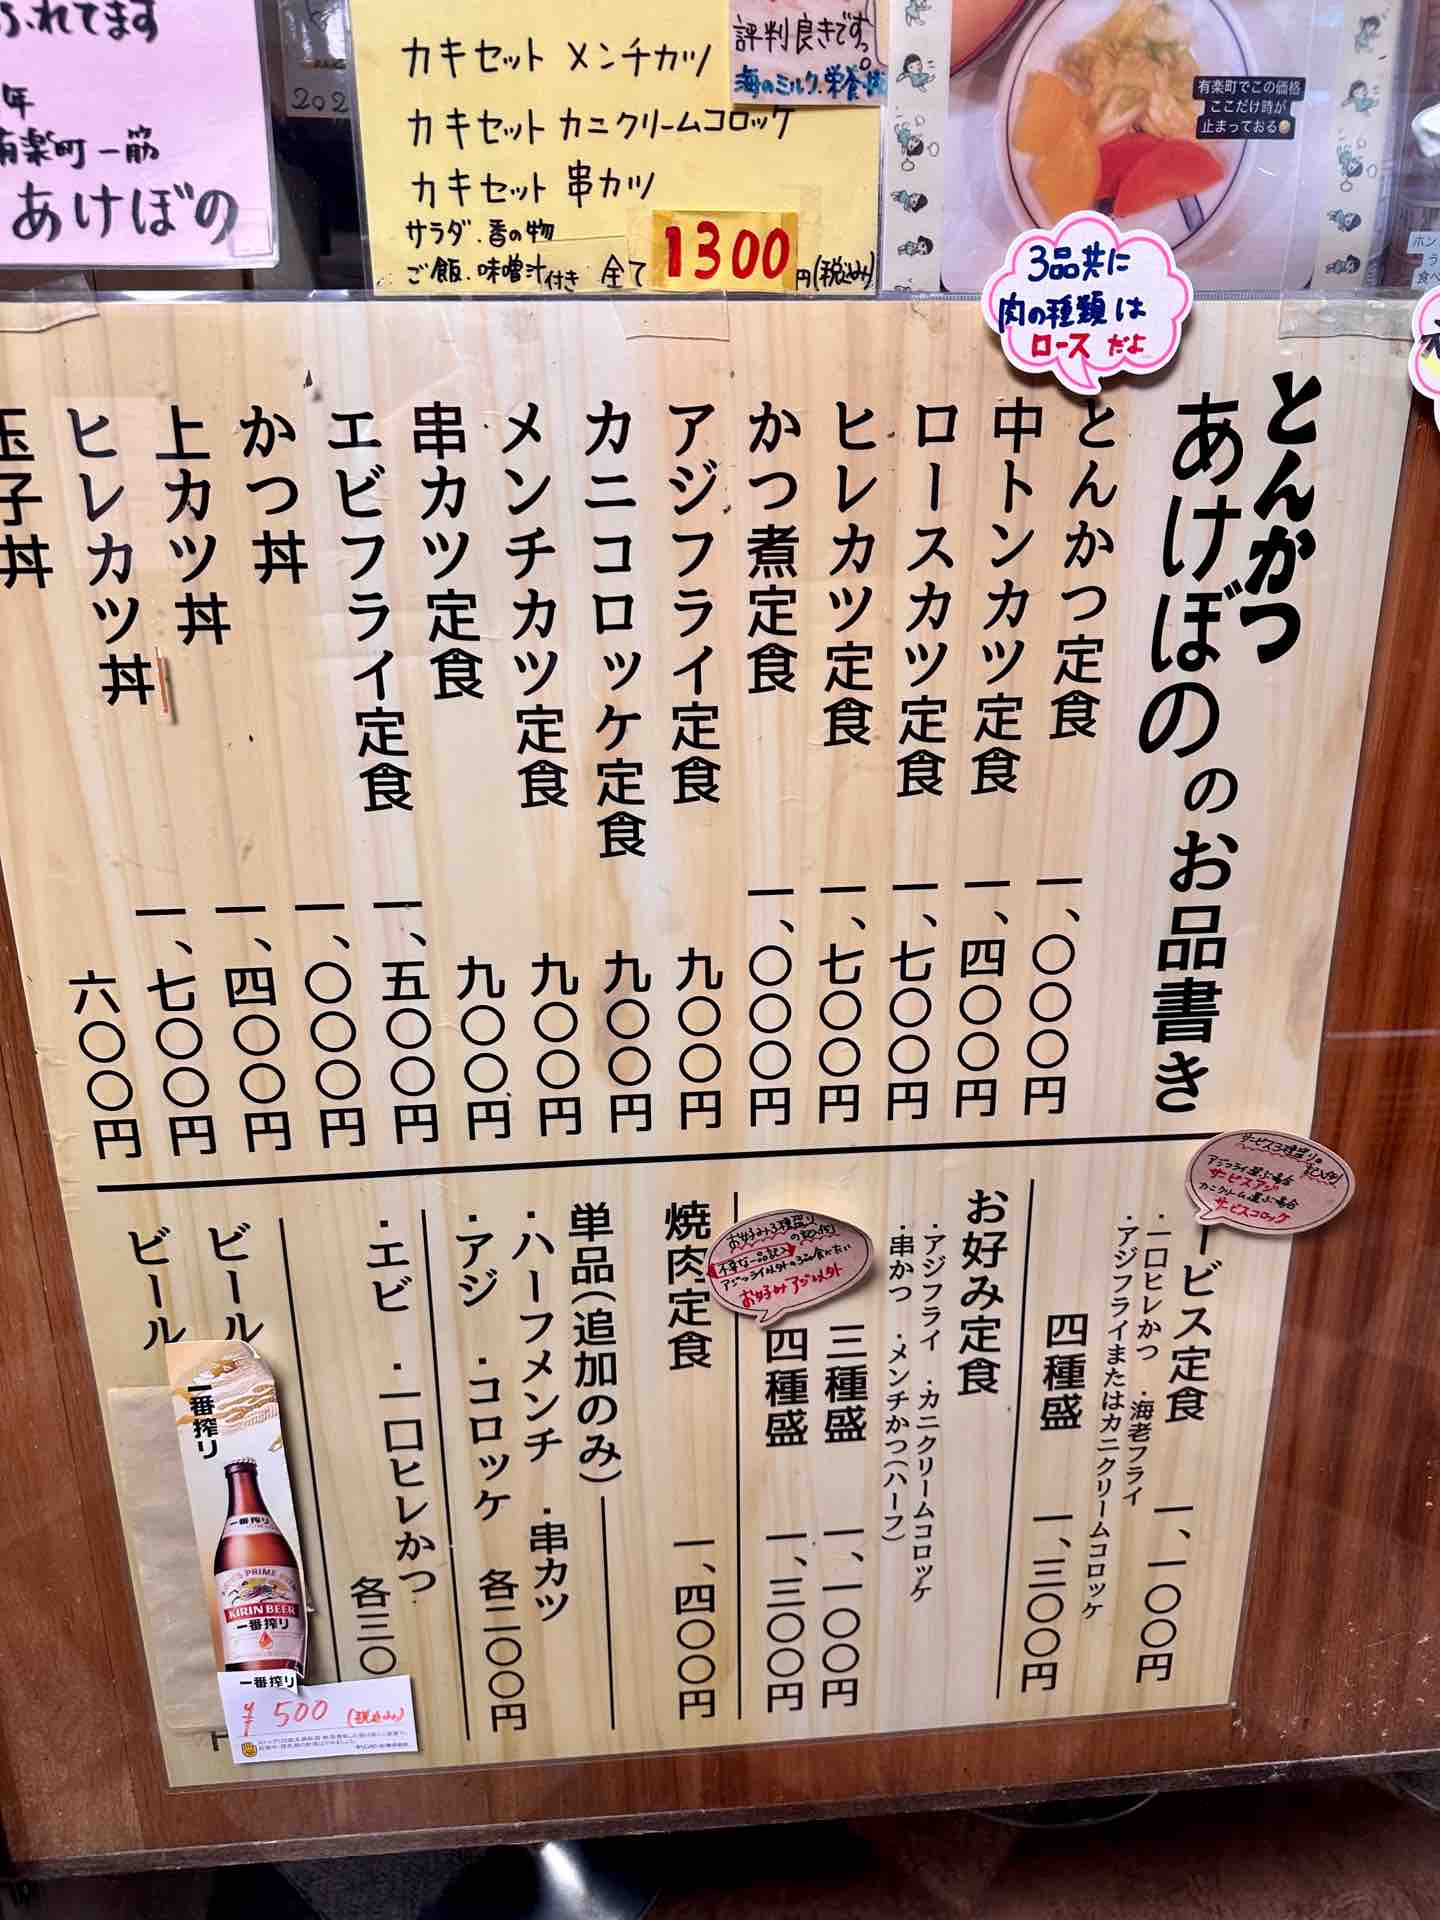 ふれてます
年
有楽町一筋
あけぼの
202
カキセット メンチカツ
カキセット カニクリームコロッケ
カキセット 串カツ
サラダ.香の物
ご飯.味噌汁付き 全て 1300円(税込み)
評判良きです。
海のミルク.栄養
有楽町でこの価格
ここだけ時が
止まっておる
3品共に
肉の種類は
ロース だよ
とんかつ
あけぼののお品書き
とんかつ定食 一、〇〇〇円
中トンカツ定食 一、四〇〇円
ロースカツ定食 一、七〇〇円
ヒレカツ定食 一、七〇〇円
かつ煮定食 一、〇〇〇円
アジフライ定食 九〇〇円
カニコロッケ定食 九〇〇円
メンチカツ定食 九〇〇円
串カツ定食 九〇〇円
エビフライ定食 一、五〇〇円
かつ丼 一、〇〇〇円
上カツ丼 一、四〇〇円
ヒレカツ丼 一、七〇〇円
玉子丼 六〇〇円
サービス3種盛りの記入例
アジフライ選ぶ場合
サービスアジ
カニクリーム選ぶ場合
サービスコロッケ
ービス定食 一、一〇〇円
・一口ヒレかつ ・海老フライ
・アジフライまたはカニクリームコロッケ
四種盛 一、三〇〇円
お好み定食
・アジフライ ・カニクリームコロッケ
・串かつ ・メンチかつ(ハーフ)
三種盛 一、一〇〇円
四種盛 一、三〇〇円
お好み3種盛り
の記入例
不要な一品記入
アジフライ以外の3品食べたい
お好みアジ以外
焼肉定食 一、四〇〇円
単品(追加のみ)
・ハーフメンチ ・串カツ
・アジ ・コロッケ 各二〇〇円
・エビ ・一口ヒレかつ 各三〇
ビール
ビール
一番搾り
一番搾り
KIRIN BEER
一番搾り
一番搾り
¥500 (税込み)